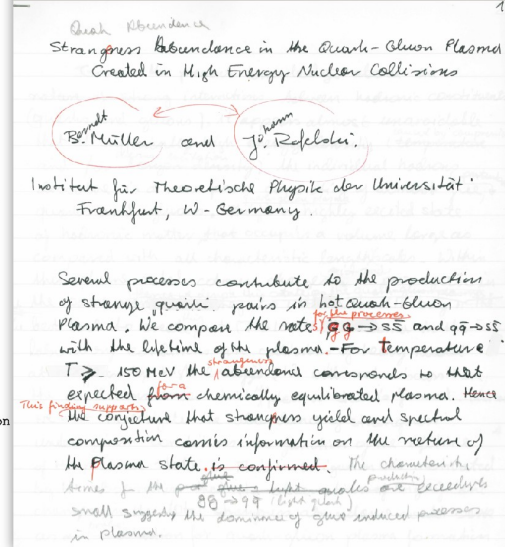 1
Quark Abundance
Strangness Abundance in the Quark-Gluon Plasma
Created in High Energy Nuclear Collisions
Berndt Müller and Johann Rafelski.
Institut für Theoretische Physik der Universität
Frankfurt, W-Germany.
Several processes contribute to the production
of strange quark pairs in hot Quark-Gluon
for the processes
Plasma. We compare the rates gg → ss̄ and qq̄ → ss̄
with the lifetime of the plasma. - For temperature
strangeness
T ≥ 150 MeV the abundance corresponds to that
for a
expected from chemically equilibrated plasma. Hence
This finding supports
on
the conjecture that strangness yield and spectral
composition carries information on the nature of
the plasma state. is confirmed. The characteristic
times for the glue light quarks are exceedingly
gg → qq̄ (light quark) production
small suggests the dominance of glue induced processes
in plasma.